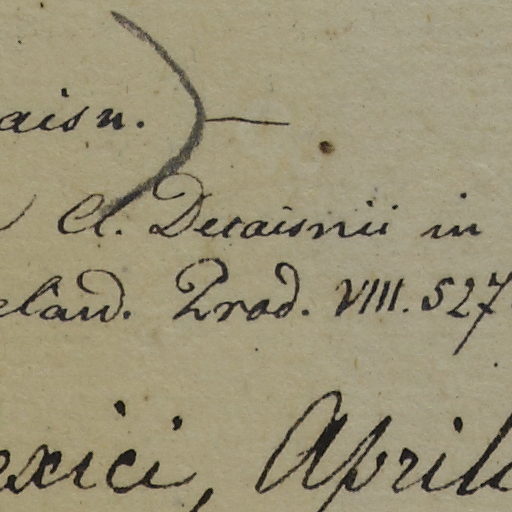 aisn. ) —
Cl. Decaisnii in
eland. Prod. VIII. 527
exici, April